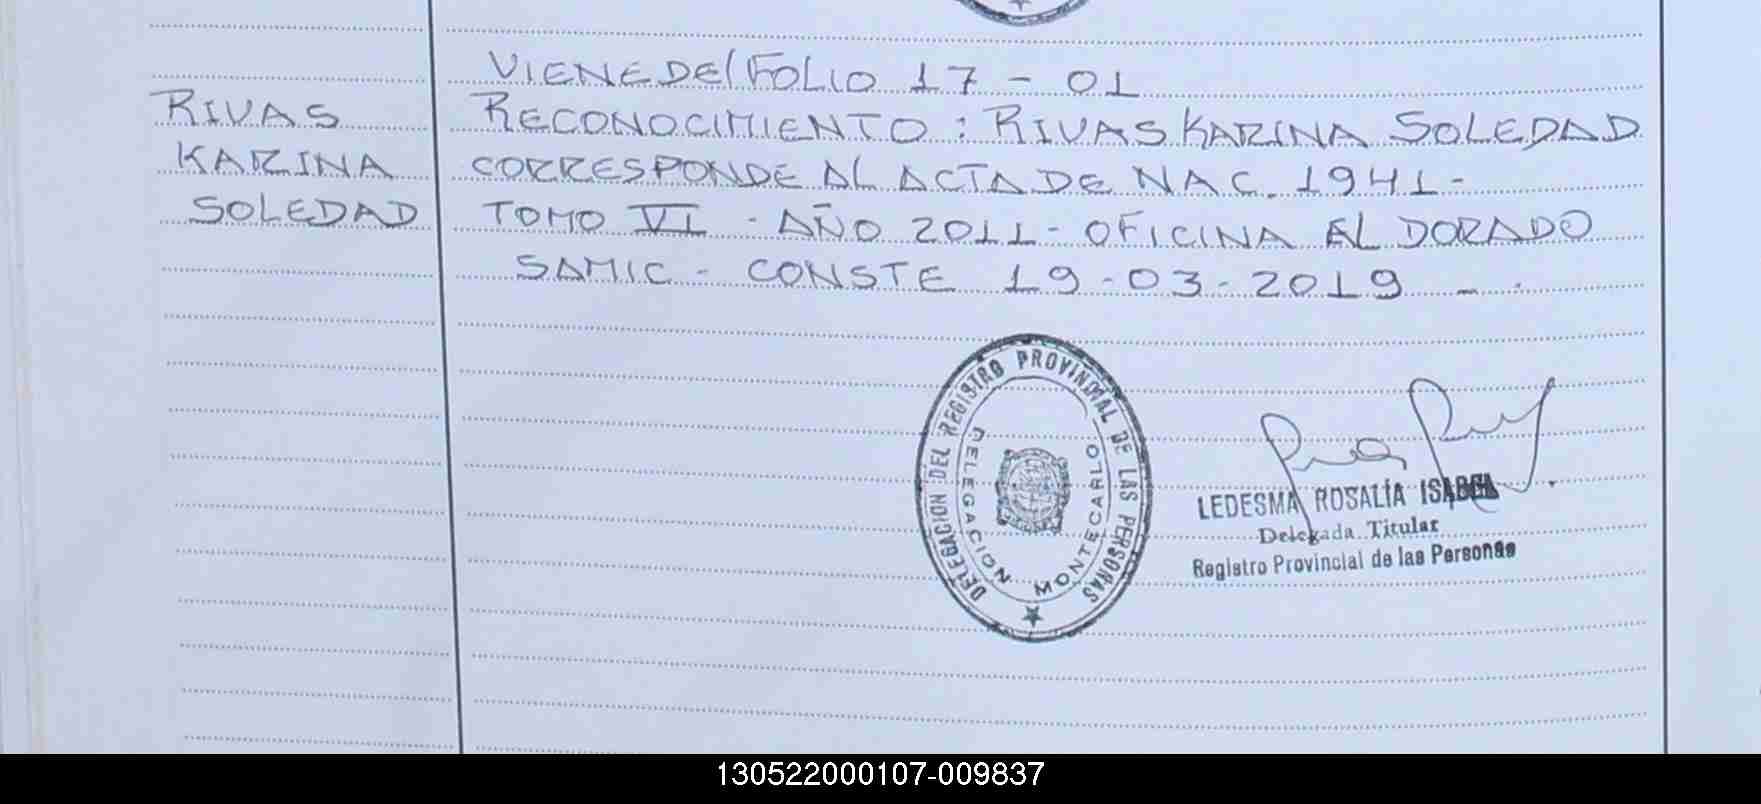 VIENE DEL FOLIO 17 - 01
RIVAS
KARINA
SOLEDAD
RECONOCIMIENTO : RIVAS KARINA SOLEDAD
CORRESPONDE AL ACTA DE NAC. 1941-
TOMO VI - AÑO 2011- OFICINA ELDORADO
SAMIC - CONSTE 19-03-2019 - .
DELEGACION DEL REGISTRO PROVINCIAL DE LAS PERSONAS
DELEGACION MONTECARLO
LEDESMA ROSALÍA ISABEL
Delegada Titular
Registro Provincial de las Personas
130522000107-009837